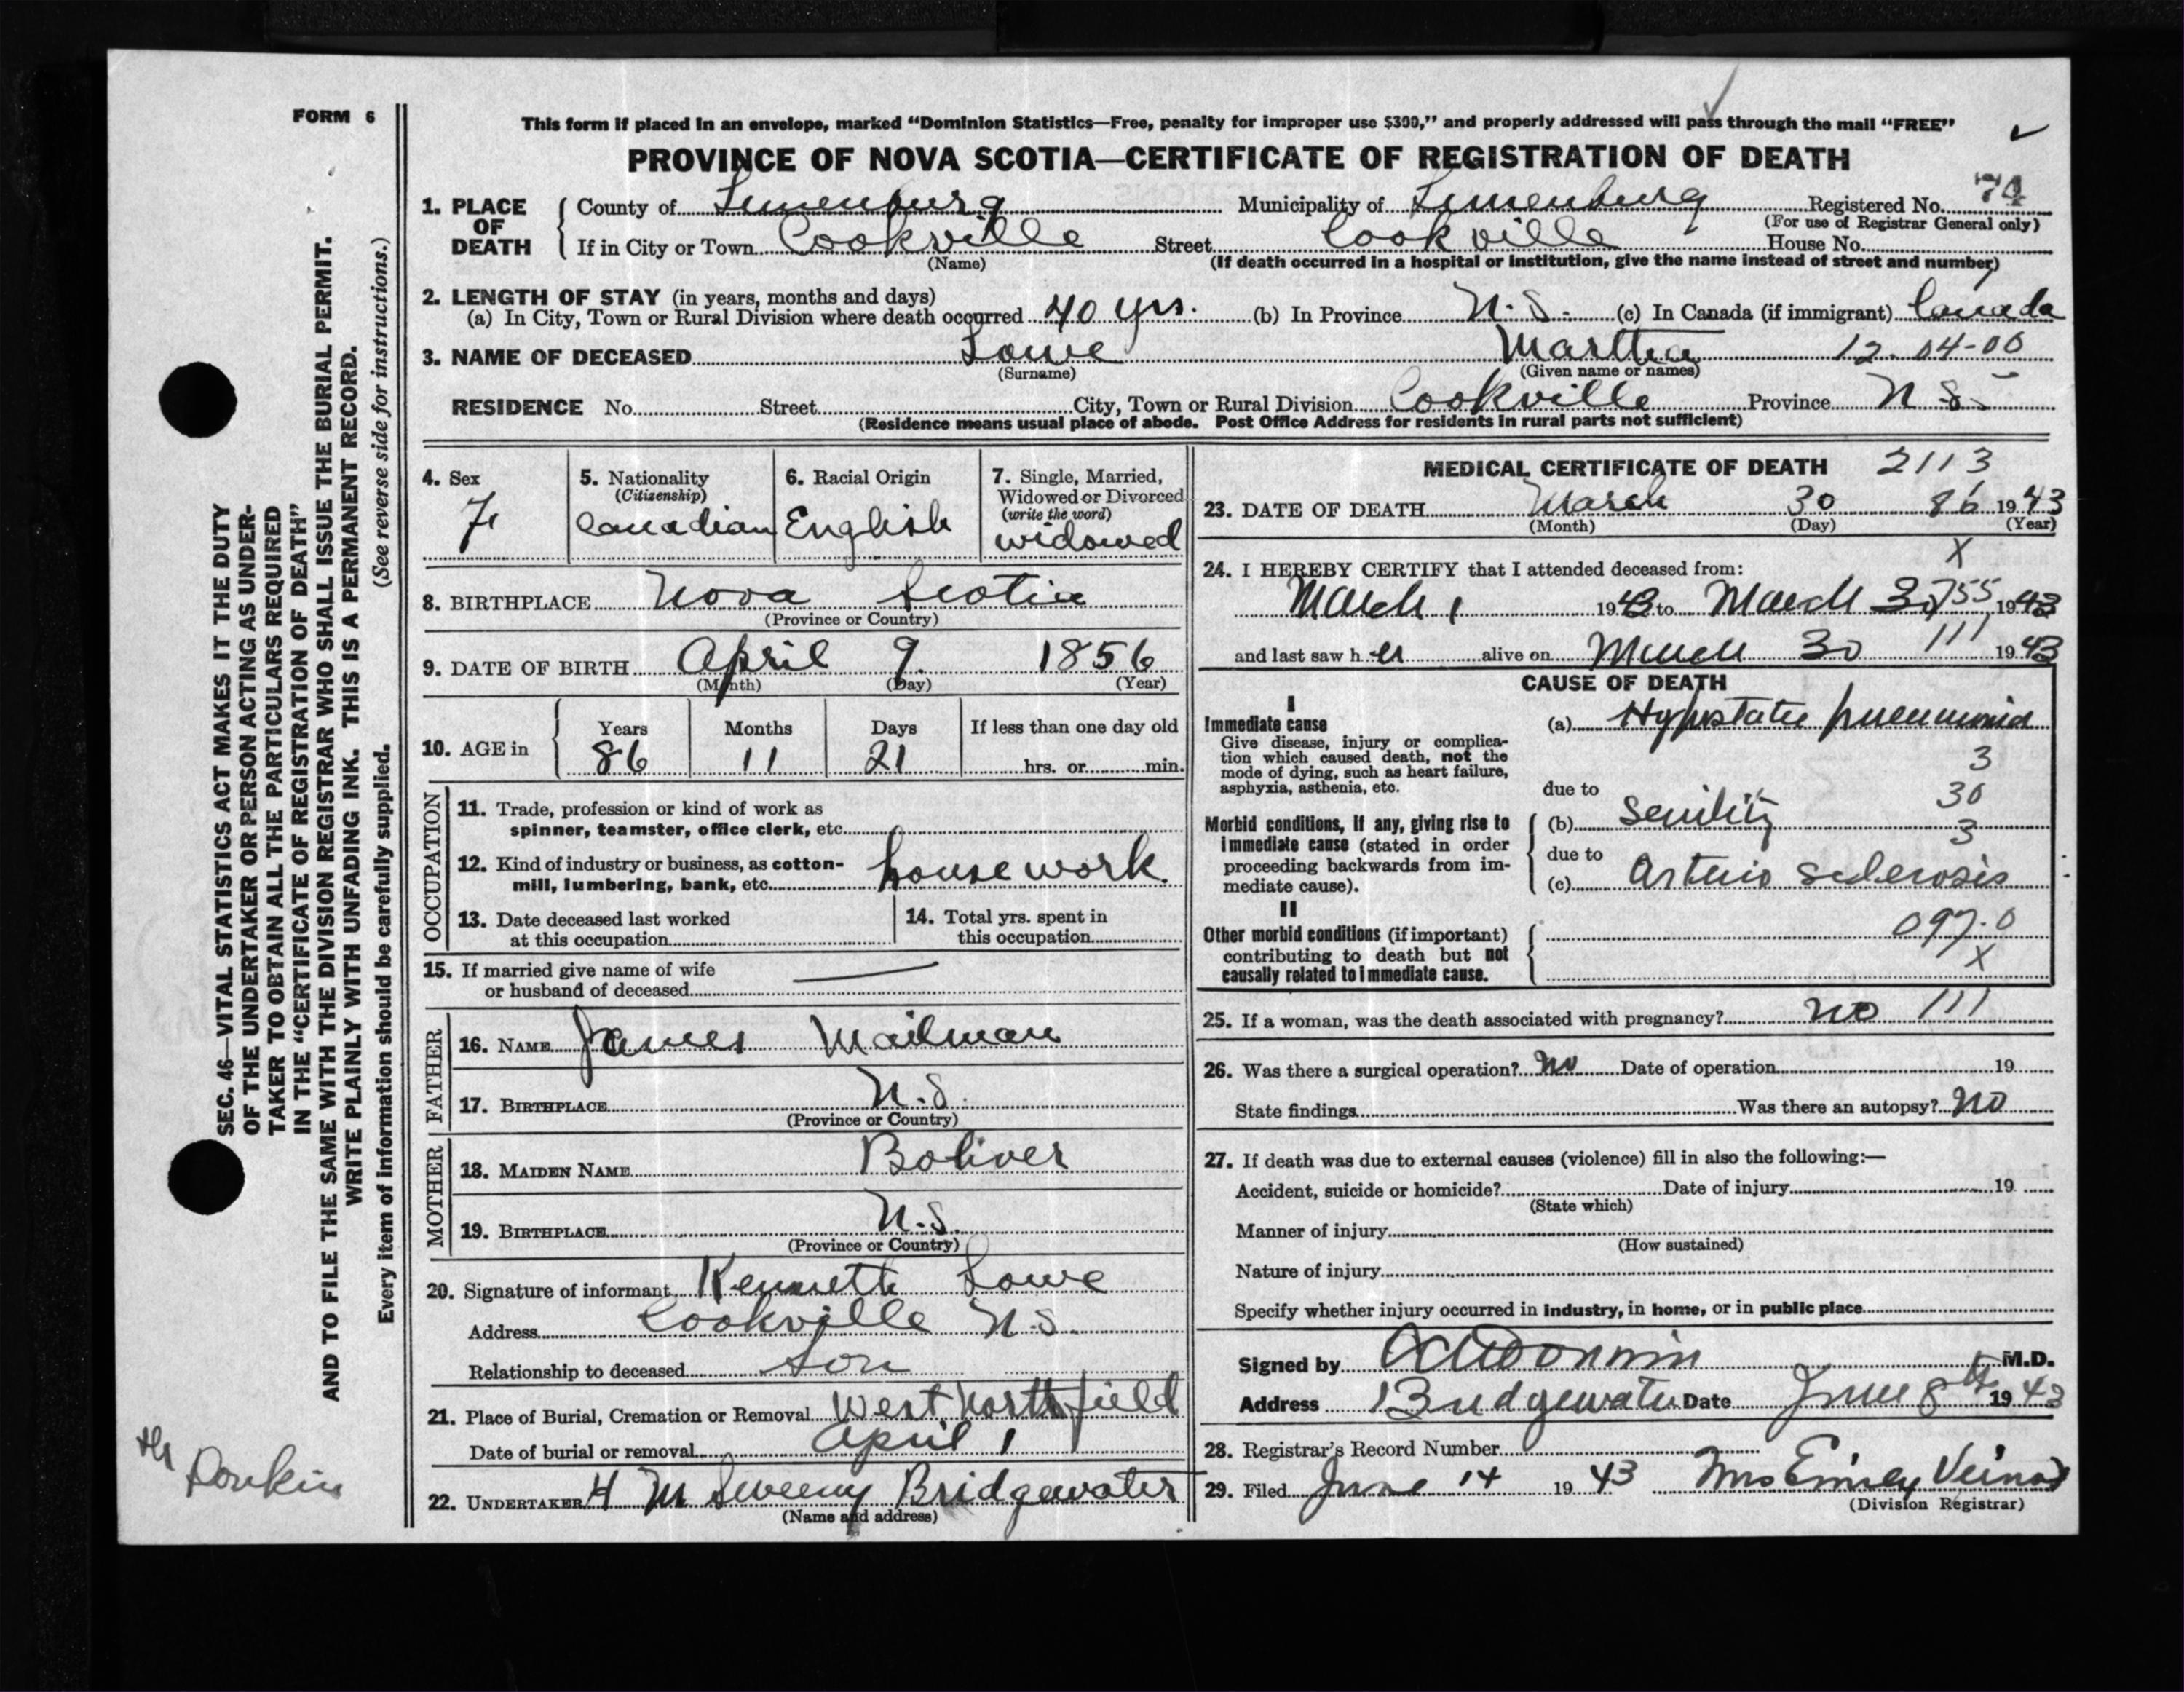 FORM 6
This form if placed in an envelope, marked "Dominion Statistics—Free, penalty for improper use $300," and properly addressed will pass through the mail "FREE"
PROVINCE OF NOVA SCOTIA—CERTIFICATE OF REGISTRATION OF DEATH
1. PLACE OF DEATH { County of Lunenburg Municipality of Lunenburg Registered No. 74
(For use of Registrar General only)
If in City or Town Cookville Street Cookville House No.
(Name) (If death occurred in a hospital or institution, give the name instead of street and number)
2. LENGTH OF STAY (in years, months and days)
(a) In City, Town or Rural Division where death occurred 40 yrs. (b) In Province N.S. (c) In Canada (if immigrant) Canada
3. NAME OF DECEASED Lowe Martha 12.04-00
(Surname) (Given name or names)
RESIDENCE No. Street City, Town or Rural Division Cookville Province N.S.
(Residence means usual place of abode. Post Office Address for residents in rural parts not sufficient)
4. Sex F
5. Nationality
(Citizenship)
Canadian
6. Racial Origin
English
7. Single, Married,
Widowed or Divorced
(write the word)
widowed
8. BIRTHPLACE Nova Scotia
(Province or Country)
9. DATE OF BIRTH April 9. 1856
(Month) (Day) (Year)
10. AGE in { Years Months Days If less than one day old
86 11 21 hrs. or min.
OCCUPATION
11. Trade, profession or kind of work as
spinner, teamster, office clerk, etc.
12. Kind of industry or business, as cotton-
mill, lumbering, bank, etc. housework.
13. Date deceased last worked
at this occupation
14. Total yrs. spent in
this occupation
15. If married give name of wife
or husband of deceased
FATHER
16. NAME James Mailman
17. BIRTHPLACE N.S.
(Province or Country)
MOTHER
18. MAIDEN NAME Boliver
19. BIRTHPLACE N.S.
(Province or Country)
20. Signature of informant Kenneth Lowe
Address Cookville N.S.
Relationship to deceased Son
21. Place of Burial, Cremation or Removal West Northfield
Date of burial or removal April 1
22. UNDERTAKER H M Sweeny Bridgewater
(Name and address)
MEDICAL CERTIFICATE OF DEATH 2113
23. DATE OF DEATH March 30 86 1943
(Month) (Day) (Year)
X
24. I HEREBY CERTIFY that I attended deceased from:
March 1 1943 to March 30 755 1943
and last saw her alive on March 30 111 1943
CAUSE OF DEATH
I
Immediate cause
Give disease, injury or complica-
tion which caused death, not the
mode of dying, such as heart failure,
asphyxia, asthenia, etc.
(a) Hypostatic pneumonia
3
due to
30
Morbid conditions, if any, giving rise to
immediate cause (stated in order
proceeding backwards from im-
mediate cause).
(b) Senility
3
due to
(c) Arterio sclerosis
II
Other morbid conditions (if important)
contributing to death but not
causally related to immediate cause.
097.0
X
25. If a woman, was the death associated with pregnancy? no 111
26. Was there a surgical operation? no Date of operation 19
State findings Was there an autopsy? no
27. If death was due to external causes (violence) fill in also the following:—
Accident, suicide or homicide? Date of injury 19
(State which)
Manner of injury
(How sustained)
Nature of injury
Specify whether injury occurred in industry, in home, or in public place
Signed by M.D.
Address Bridgewater Date June 8th 1943
28. Registrar's Record Number
29. Filed June 14 1943 Mrs Veinot
(Division Registrar)
SEC. 46—VITAL STATISTICS ACT MAKES IT THE DUTY
OF THE UNDERTAKER OR PERSON ACTING AS UNDER-
TAKER TO OBTAIN ALL THE PARTICULARS REQUIRED
IN THE "CERTIFICATE OF REGISTRATION OF DEATH"
AND TO FILE THE SAME WITH THE DIVISION REGISTRAR WHO SHALL ISSUE THE BURIAL PERMIT.
WRITE PLAINLY WITH UNFADING INK. THIS IS A PERMANENT RECORD.
Every item of information should be carefully supplied. (See reverse side for instructions.)
Donkin